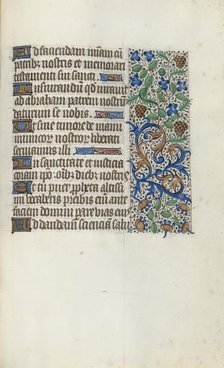 Ad faciendam miam cū
patrib; nostris et memorari
testamenti sui sancti
Iusiurandū qd iurauit
ad abraham patrem nostrū
daturum se nobis
Ut sine timore de manu
inimicor nostror liberati
seruiamus illi
In sanctitate et iusticia
coram ipo oīb; dieb; nostris
Et tu puer ppheta altissi
mi vocaberis preibis enī ante
faciem domini parare vias eius
Ad dandam scienciā salu